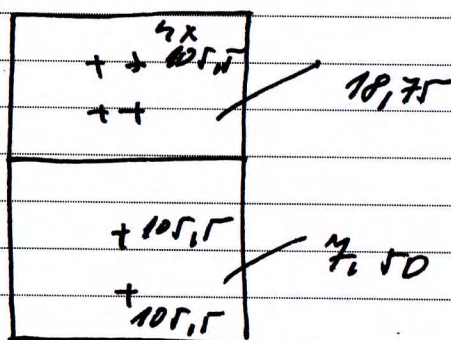 4x
105,5
18,75
105,5
105,5